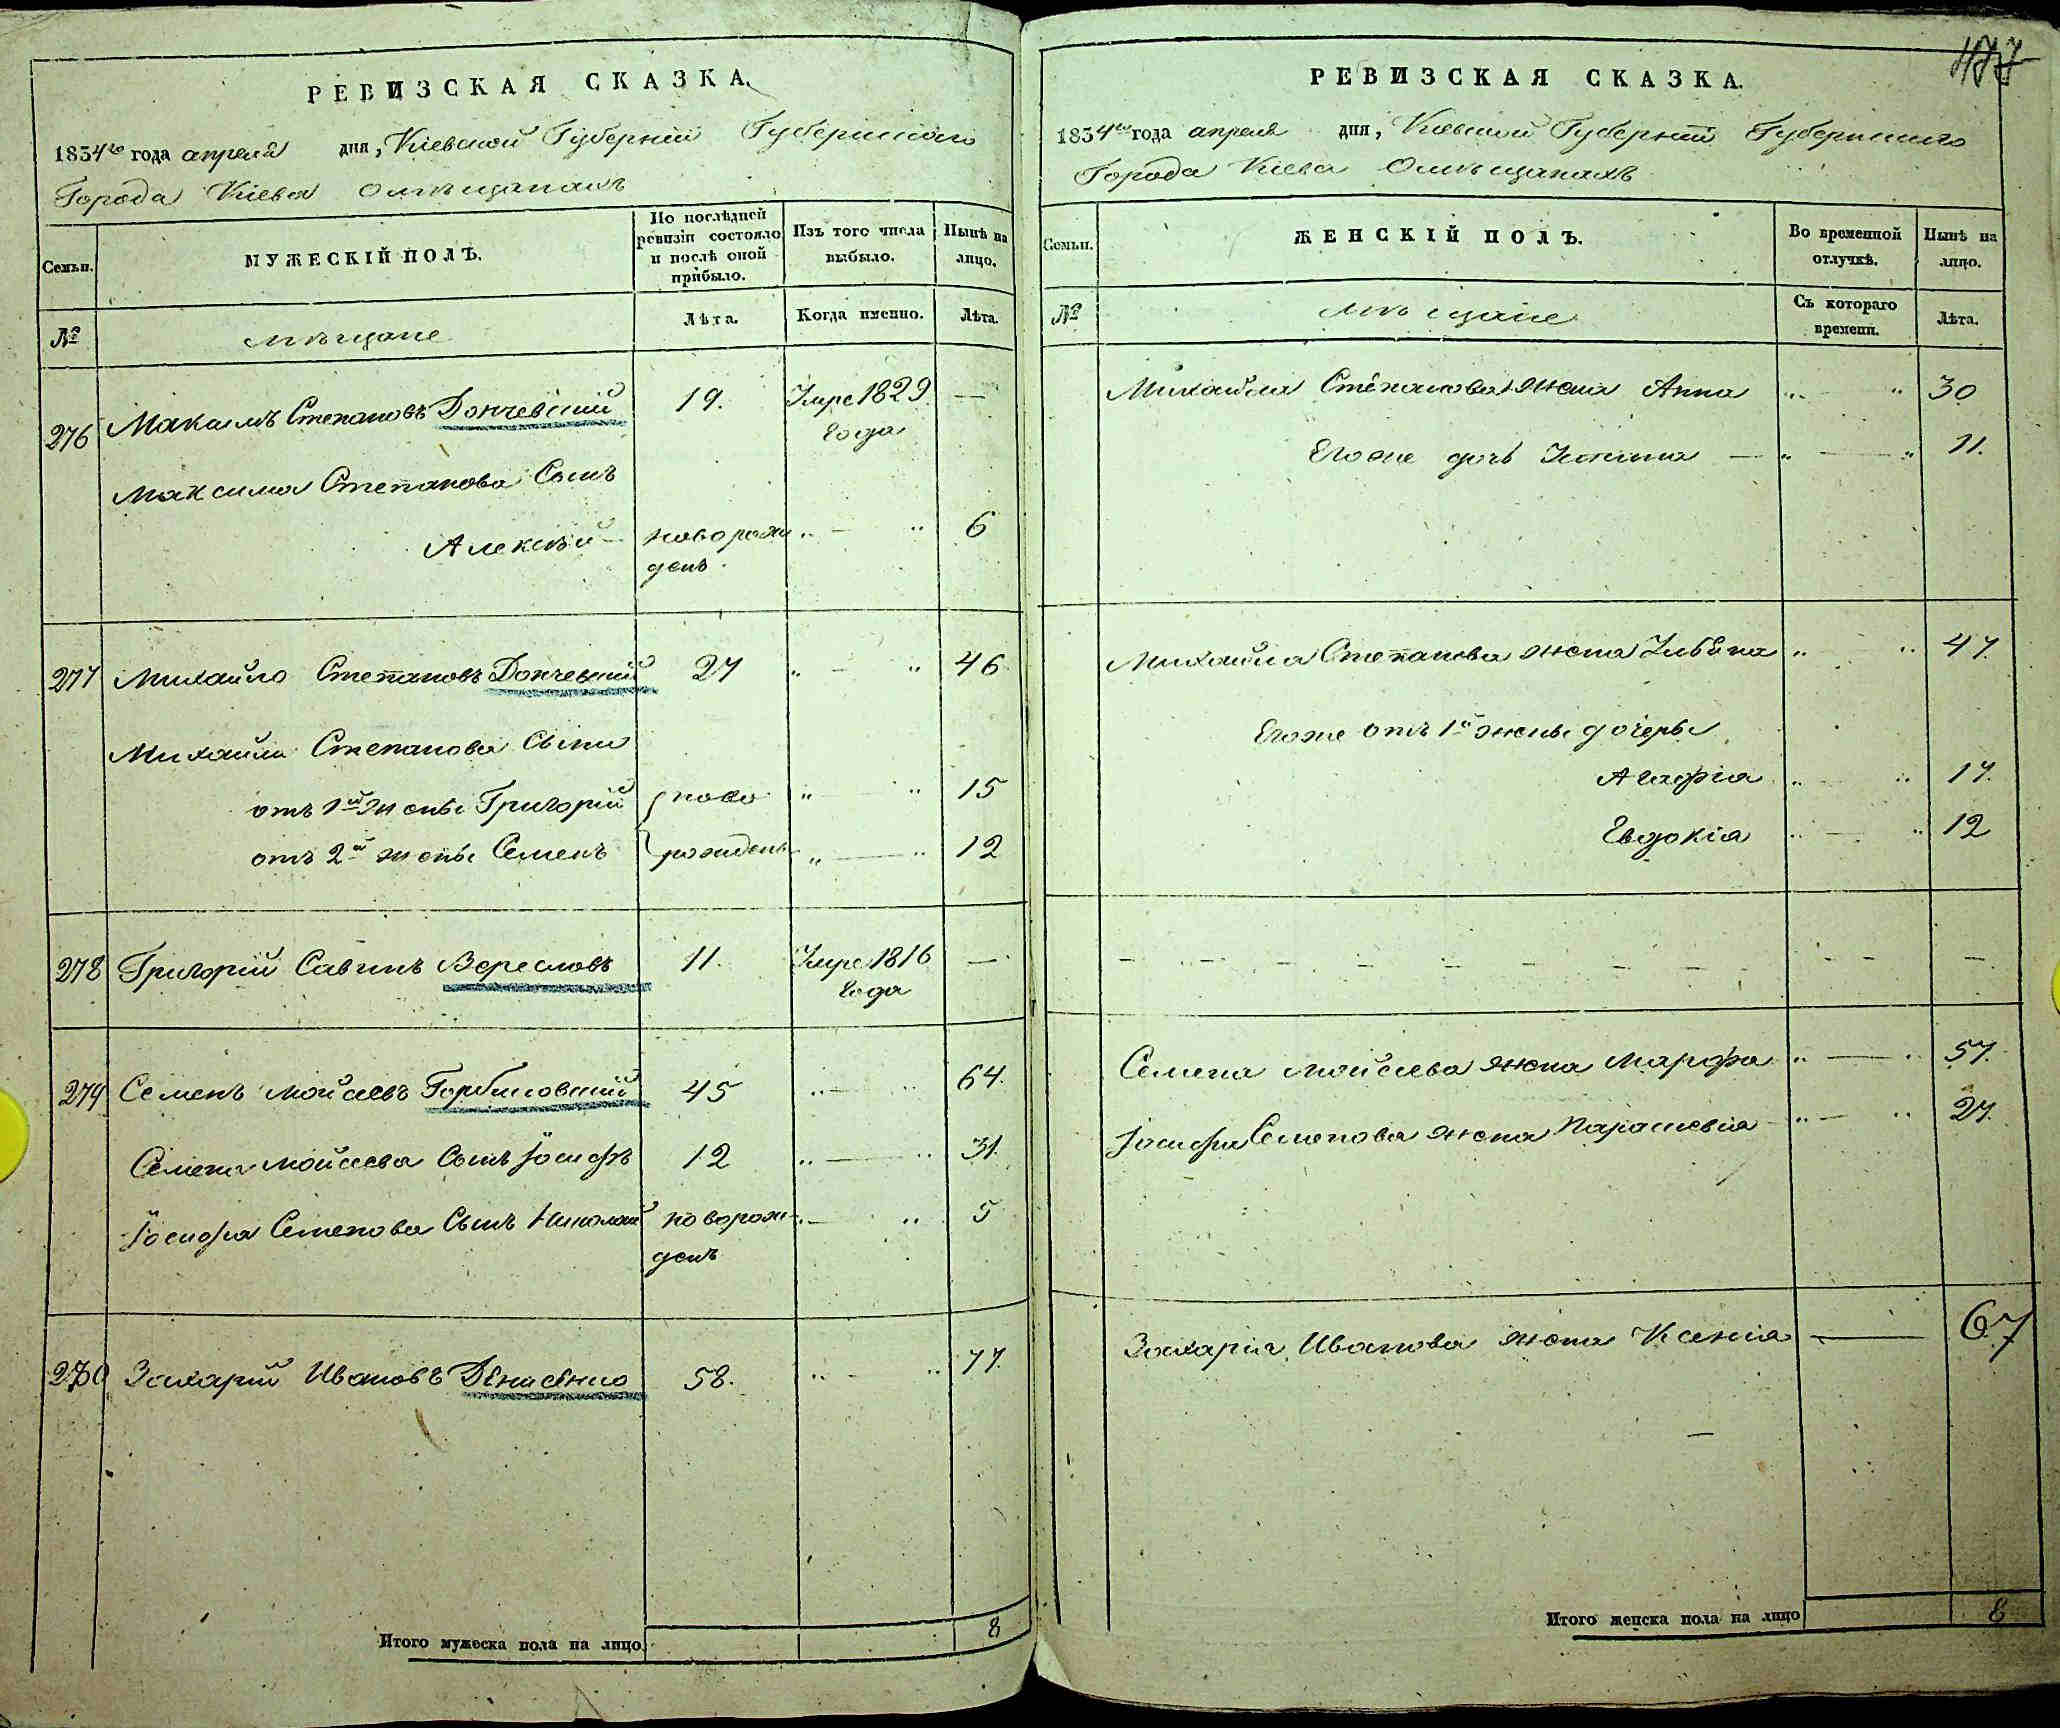 РЕВИЗСКАЯ СКАЗКА.
1834го года апреля дня, Кіевской Губерніи Губернскаго
Города Кіева О мѣщанахъ
Семьи.
МУЖЕСКІЙ ПОЛЪ.
По послѣдней ревизіи состояло и послѣ оной прибыло.
Изъ того числа выбыло.
Нынѣ на лицо.
№
мѣщане
Лѣта.
Когда именно.
Лѣта.
276 Максимъ Степановъ Дончевскій 19. Умре 1829 года —
Максима Степанова Сынъ
Алексѣй новорожденъ „ — „ 6
277 Михайло Степановъ Дончевскій 27 „ — „ 46
Михайла Степанова Сыны
отъ 1й жены Григорій ново „ — „ 15
отъ 2й жены Семенъ рожденъ „ — „ 12
278 Григорій Савинъ 11. Умре 1816 года —
279 Семенъ Мойсеевъ 45 „ — „ 64.
Семена Мойсеева Сынъ Іосифъ 12 „ — „ 31.
Іосифа Семенова Сынъ Николай новорожденъ „ — „ 5
Захарій Ивановъ Денисенко 58. „ — „ 77.
Итого мужеска пола на лицо. 8
РЕВИЗСКАЯ СКАЗКА.
1834го года апреля дня, Кіевской Губерніи Губернскаго
Города Кіева О мѣщанахъ
Семьи.
ЖЕНСКІЙ ПОЛЪ.
Во временной отлучкѣ.
Нынѣ на лицо.
№
мѣщане
Съ котораго времени.
Лѣта.
Михайла Степанова жена Анна „ — „ 30
Егоже дочь — „ — „ 11.
Михайла Степанова жена „ „ 47.
Егоже отъ 1й жены дочеры
Агафія „ — „ 17.
Евдокія „ — „ 12
— — — — — — — — —
Семена Мойсеева жена Марфа „ — „ 57.
Іосифа Семенова жена Параскевія „ — „ 27.
Захарія Иванова жена Ксенія — 67
Итого женска пола на лицо 8